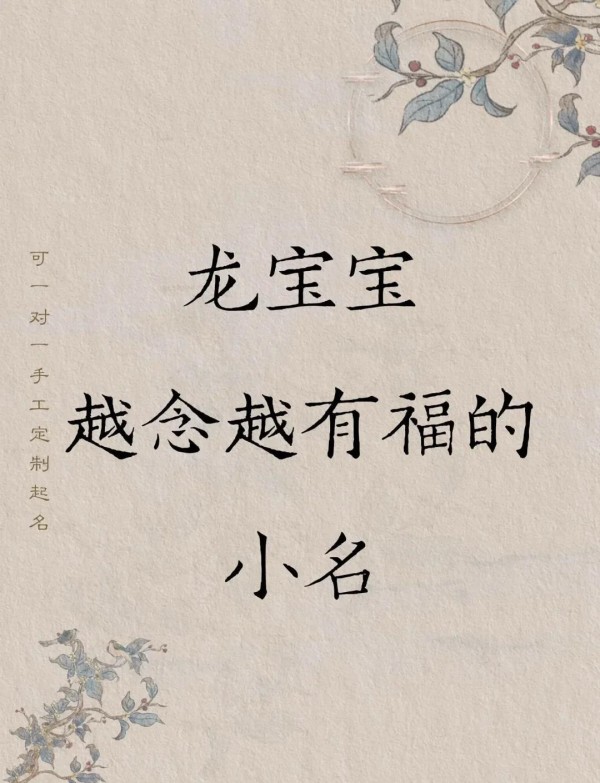 龙宝宝
越念越有福的
小名
可一对一手工定制起名